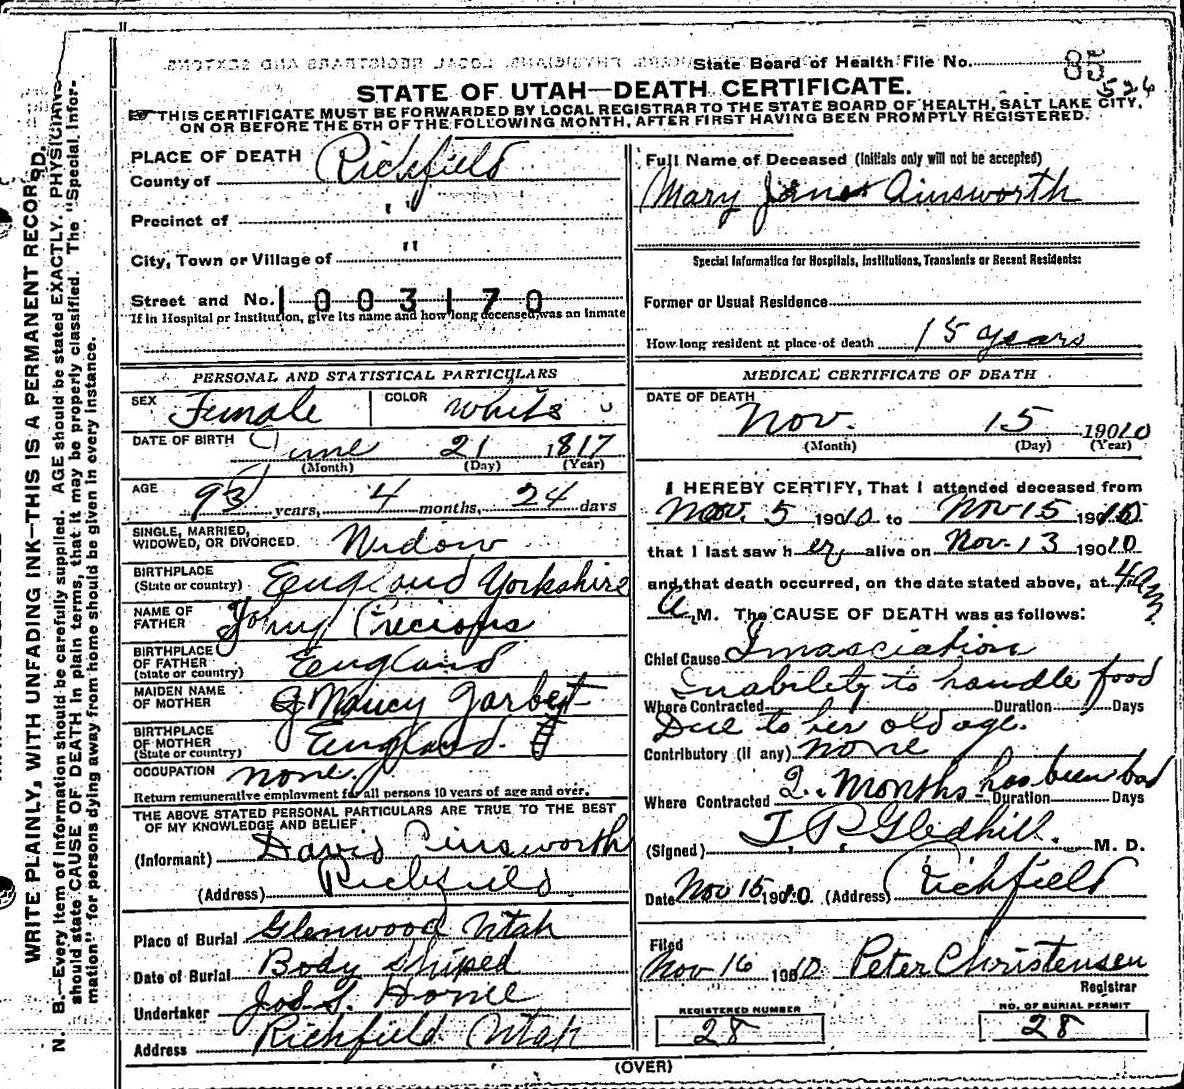 State Board of Health File No. 85
526
STATE OF UTAH—DEATH CERTIFICATE.
THIS CERTIFICATE MUST BE FORWARDED BY LOCAL REGISTRAR TO THE STATE BOARD OF HEALTH, SALT LAKE CITY,
ON OR BEFORE THE 5TH OF THE FOLLOWING MONTH, AFTER FIRST HAVING BEEN PROMPTLY REGISTERED.
WRITE PLAINLY, WITH UNFADING INK—THIS IS A PERMANENT RECORD.
N. B.—Every item of information should be carefully supplied. AGE should be stated EXACTLY. PHYSICIANS
should state CAUSE OF DEATH in plain terms, that it may be properly classified. The "Special Infor-
mation" for persons dying away from home should be given in every instance.
PLACE OF DEATH
County of Richfield
Precinct of "
City, Town or Village of "
Street and No. 1003170
If in Hospital or Institution, give its name and how long deceased was an inmate
PERSONAL AND STATISTICAL PARTICULARS
SEX Female COLOR White
DATE OF BIRTH June 21 1817
(Month) (Day) (Year)
AGE 93 years, 4 months, 24 days
SINGLE, MARRIED,
WIDOWED, OR DIVORCED. Widow
BIRTHPLACE
(State or country) England Yorkshire
NAME OF
FATHER John Precious
BIRTHPLACE
OF FATHER
(State or country) England
MAIDEN NAME
OF MOTHER Nancy Garbet
BIRTHPLACE
OF MOTHER
(State or country) England.
OCCUPATION none.
Return remunerative employment for all persons 10 years of age and over.
THE ABOVE STATED PERSONAL PARTICULARS ARE TRUE TO THE BEST
OF MY KNOWLEDGE AND BELIEF
(Informant) David Ainsworth
(Address) Richfield
Place of Burial Glenwood Utah
Date of Burial Body Shiped
Undertaker Jos. S. Horne
Address Richfield Utah
Full Name of Deceased (Initials only will not be accepted)
Mary Jane Ainsworth
Special Information for Hospitals, Institutions, Transients or Recent Residents:
Former or Usual Residence
How long resident at place of death 15 years
MEDICAL CERTIFICATE OF DEATH
DATE OF DEATH
Nov. 15 19010
(Month) (Day) (Year)
I HEREBY CERTIFY, That I attended deceased from
Nov. 5 19010 to Nov 15 19010
that I last saw her alive on Nov. 13 19010
and that death occurred, on the date stated above, at 4 am
a M. The CAUSE OF DEATH was as follows:
Chief Cause Imasciation
Inability to handle food
Where Contracted Duration Days
Due to her old age.
Contributory (if any) none
2. Months has been bad
Where Contracted Duration Days
(Signed) T. P. Gledhill. M. D.
Date Nov 15 19010. (Address) Richfield
Filed
Nov 16 19010 Peter Christensen
Registrar
REGISTERED NUMBER
28
NO. OF BURIAL PERMIT
28
(OVER)